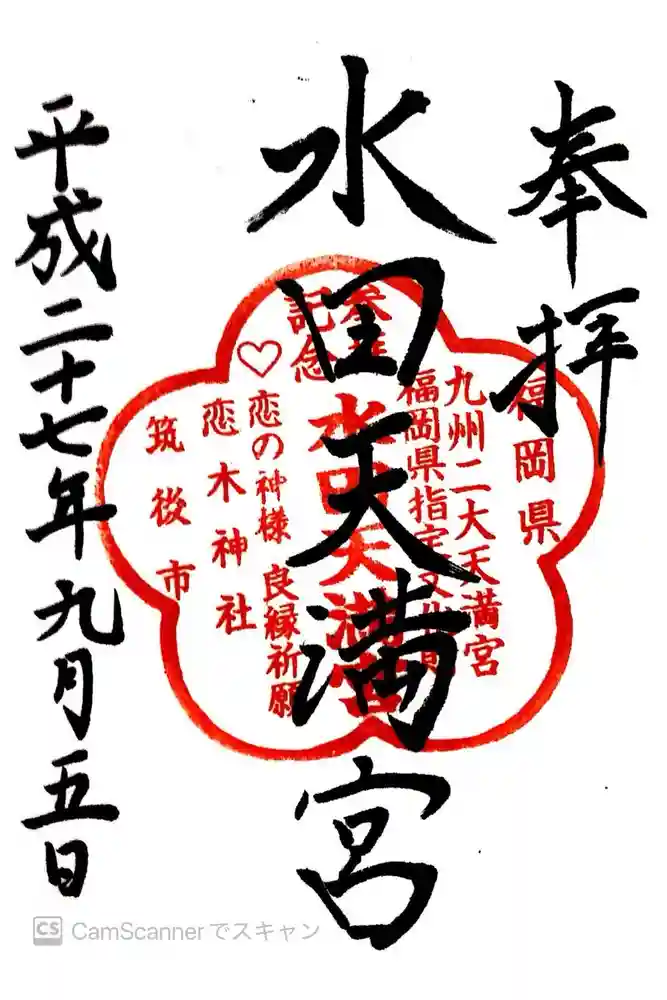 奉拝
水田天満宮
平成二十七年九月五日
福岡県
九州二大天満宮
福岡県指定文化財
水田天満宮
参拝
記念
♡恋の神様 良縁祈願
恋木神社
筑後市
CS CamScannerでスキャン